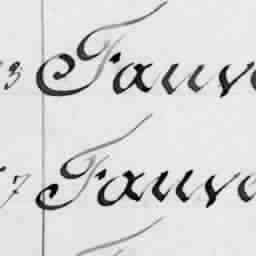 3 Fauve
7 Fauve